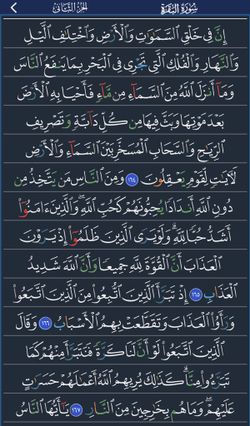 سُورَةُ البَقَرَةِ الجُزءُ الثَّانِي
إِنَّ فِي خَلْقِ ٱلسَّمَٰوَٰتِ وَٱلْأَرْضِ وَٱخْتِلَٰفِ ٱلَّيْلِ
وَٱلنَّهَارِ وَٱلْفُلْكِ ٱلَّتِي تَجْرِي فِي ٱلْبَحْرِ بِمَا يَنفَعُ ٱلنَّاسَ
وَمَآ أَنزَلَ ٱللَّهُ مِنَ ٱلسَّمَآءِ مِن مَّآءٍ فَأَحْيَا بِهِ ٱلْأَرْضَ
بَعْدَ مَوْتِهَا وَبَثَّ فِيهَا مِن كُلِّ دَآبَّةٍ وَتَصْرِيفِ
ٱلرِّيَٰحِ وَٱلسَّحَابِ ٱلْمُسَخَّرِ بَيْنَ ٱلسَّمَآءِ وَٱلْأَرْضِ
لَءَايَٰتٍ لِّقَوْمٍ يَعْقِلُونَ ١٦٤ وَمِنَ ٱلنَّاسِ مَن يَتَّخِذُ مِن
دُونِ ٱللَّهِ أَندَادًا يُحِبُّونَهُمْ كَحُبِّ ٱللَّهِ ۖ وَٱلَّذِينَ ءَامَنُوٓا۟
أَشَدُّ حُبًّا لِّلَّهِ ۗ وَلَوْ يَرَى ٱلَّذِينَ ظَلَمُوٓا۟ إِذْ يَرَوْنَ
ٱلْعَذَابَ أَنَّ ٱلْقُوَّةَ لِلَّهِ جَمِيعًا وَأَنَّ ٱللَّهَ شَدِيدُ
ٱلْعَذَابِ ١٦٥ إِذْ تَبَرَّأَ ٱلَّذِينَ ٱتُّبِعُوا۟ مِنَ ٱلَّذِينَ ٱتَّبَعُوا۟
وَرَأَوُا۟ ٱلْعَذَابَ وَتَقَطَّعَتْ بِهِمُ ٱلْأَسْبَابُ ١٦٦ وَقَالَ
ٱلَّذِينَ ٱتَّبَعُوا۟ لَوْ أَنَّ لَنَا كَرَّةً فَنَتَبَرَّأَ مِنْهُمْ كَمَا
تَبَرَّءُوا۟ مِنَّا ۗ كَذَٰلِكَ يُرِيهِمُ ٱللَّهُ أَعْمَٰلَهُمْ حَسَرَٰتٍ
عَلَيْهِمْ ۖ وَمَا هُم بِخَٰرِجِينَ مِنَ ٱلنَّارِ ١٦٧ يَٰٓأَيُّهَا ٱلنَّاسُ